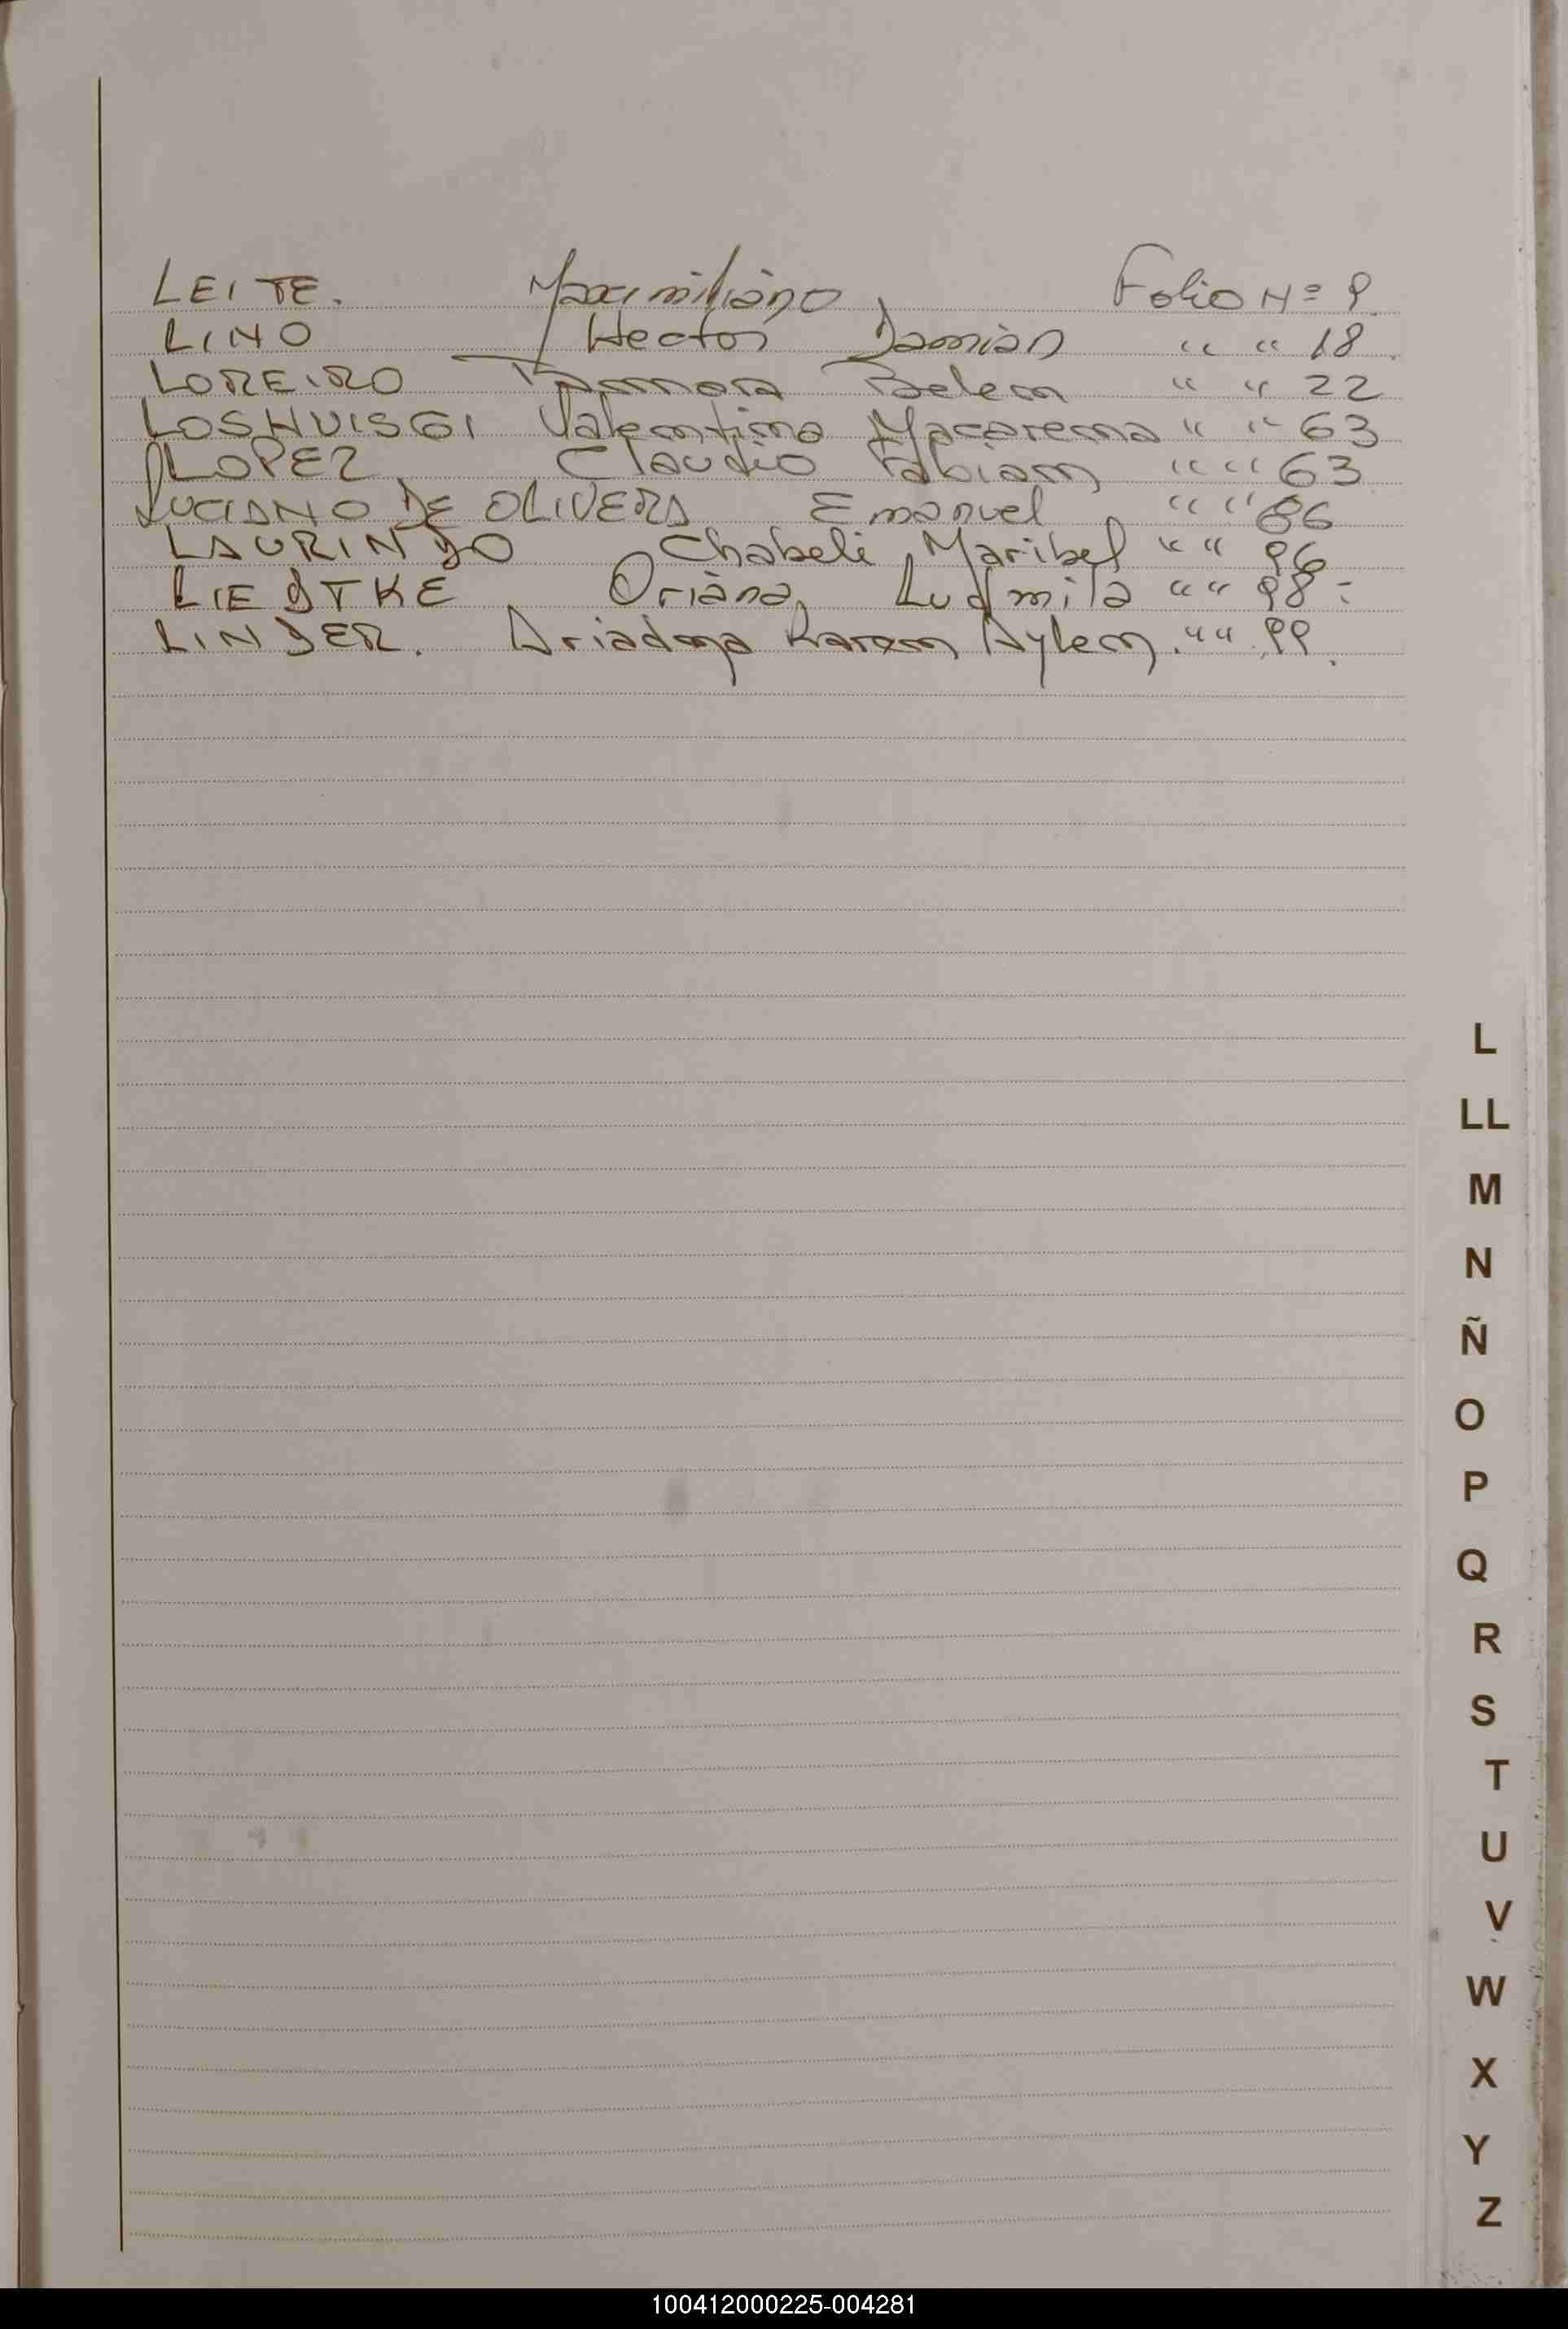 LEITE. Maximiliano Folio Nº 9.
LINO Hector Damián " " 18.
LOREIRO Tamara Belen " " 22
LOSHUISGI Valentina Macarena " " 63
LOPEZ Claudio Fabian " " 63
LUCIANO DE OLIVERA Emanuel " " 86
LAURINDO Chabeli Maribel " " 96
LIEDTKE Oriana Ludmila " " 98
LINDER. Ariadna Karen Aylen. " " 99.
L
LL
M
N
Ñ
O
P
Q
R
S
T
U
V
W
X
Y
Z
100412000225-004281